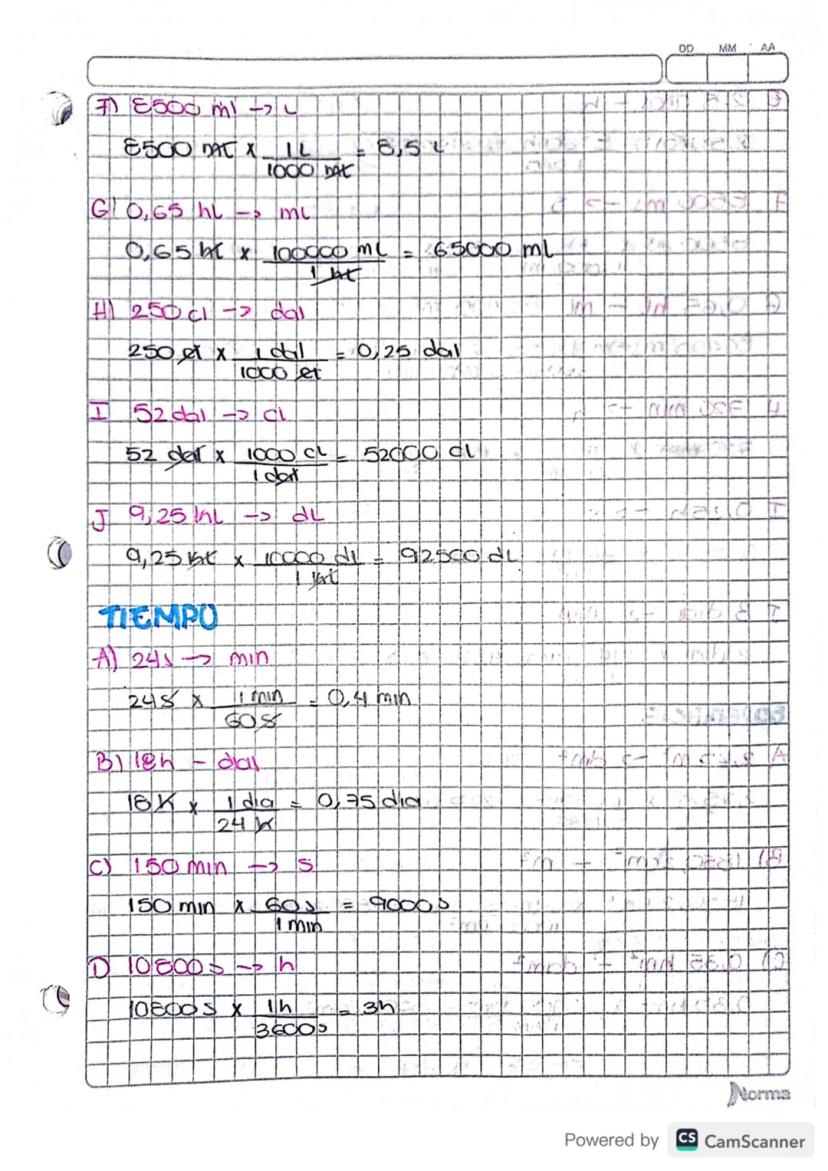 DD MM AA
F) 8500 ml -> L
8500 ml x 1L / 1000 ml = 8,5 L
G) 0,65 hl -> ml
0,65 hl x 100000 ml / 1 hl = 65000 ml
H) 250 cl -> dal
250 cl x 1 dal / 1000 cl = 0,25 dal
I 52 dal -> cl
52 dal x 1000 cl / 1 dal = 52000 cl
J 9,25 kL -> dL
9,25 kl x 10000 dl / 1 kl = 92500 dL
TIEMPO
A) 24s -> min
24s x 1 min / 60s = 0,4 min
B) 18h - dias
18h x 1 dia / 24 h = 0,75 dia
C) 150 min -> s
150 min x 60s / 1 min = 9000s
D 10800s -> h
10800s x 1h / 3600s = 3h
Norma
Powered by CS CamScanner